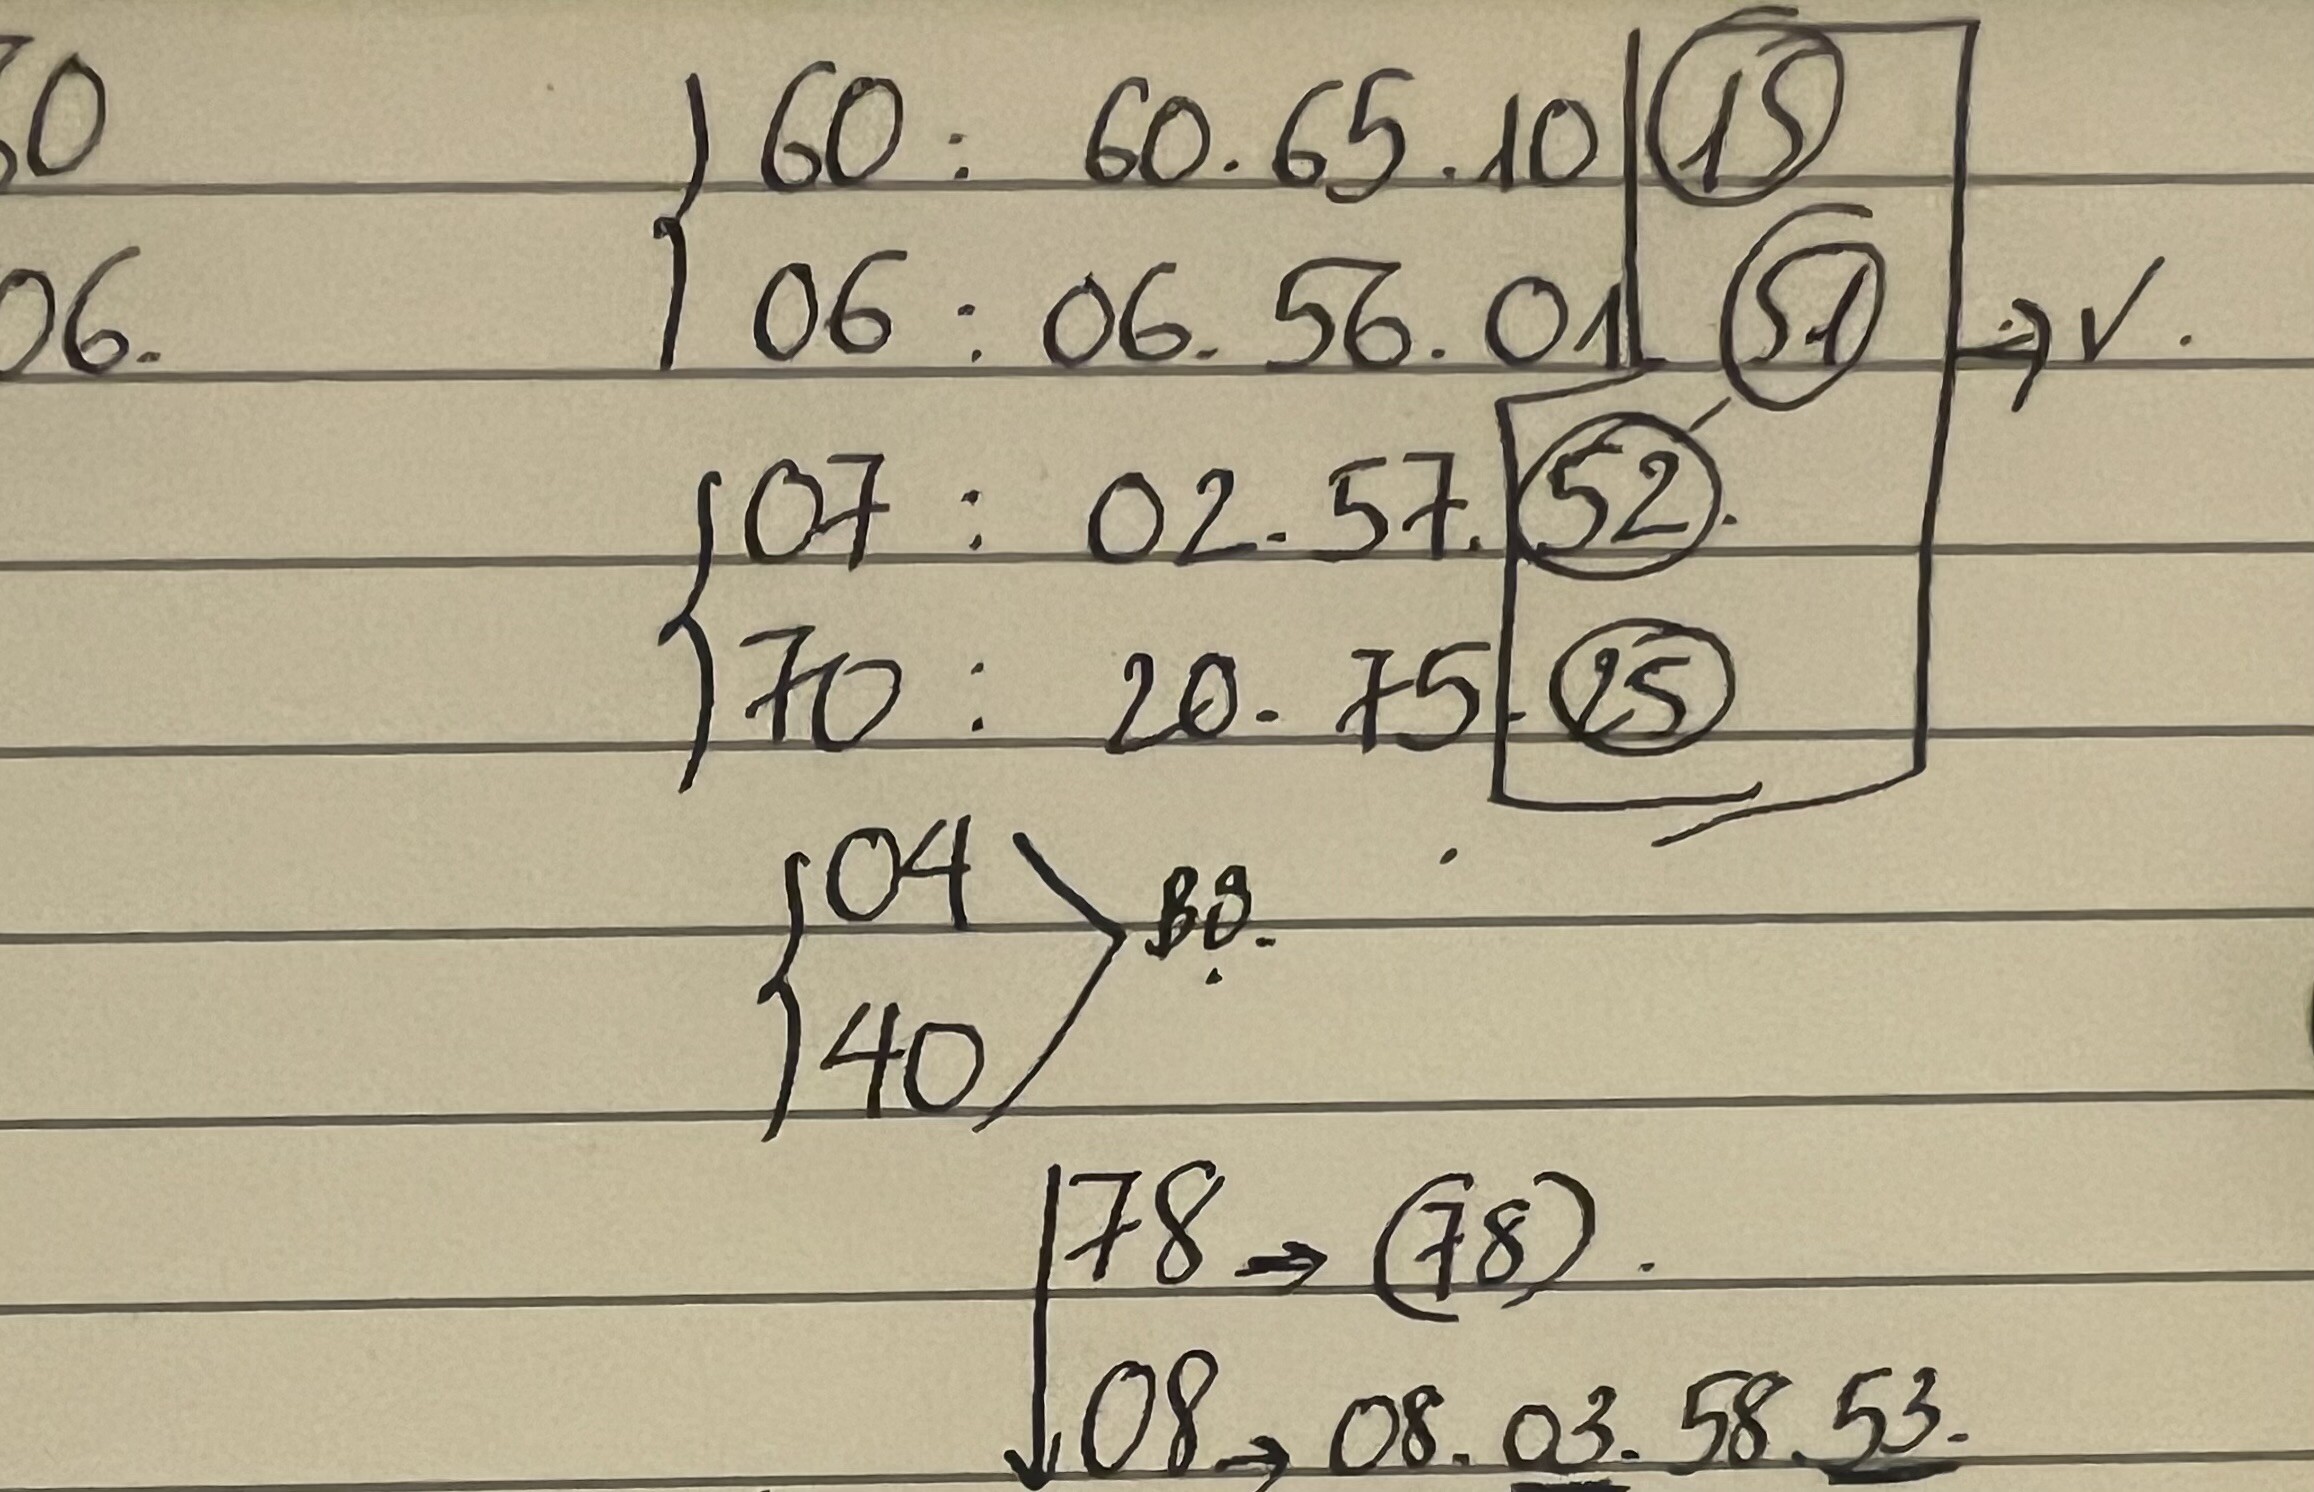 60 : 60.65.10 15
06. 06 : 06.56.01 51 → V.
07 : 02.57.52.
70 : 20.75.25
04
BỎ.
40
78 → (78).
08 → 08.03.58.53.